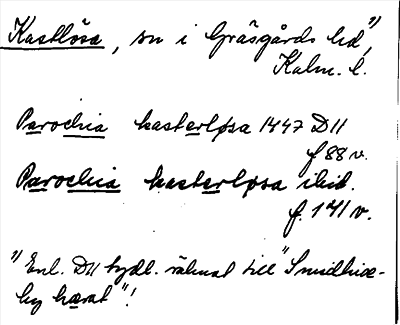 Kastlösa, sn i Gräsgårds hd, 1)
Kalm. l.
Parochia kasterløsa 1447 D11
f 88 v.
Parochia kasterløsa ibid.
f. 171 v.
1) Enl. D11 tydl. räknat till "Smidhiæ-
by hærat"!